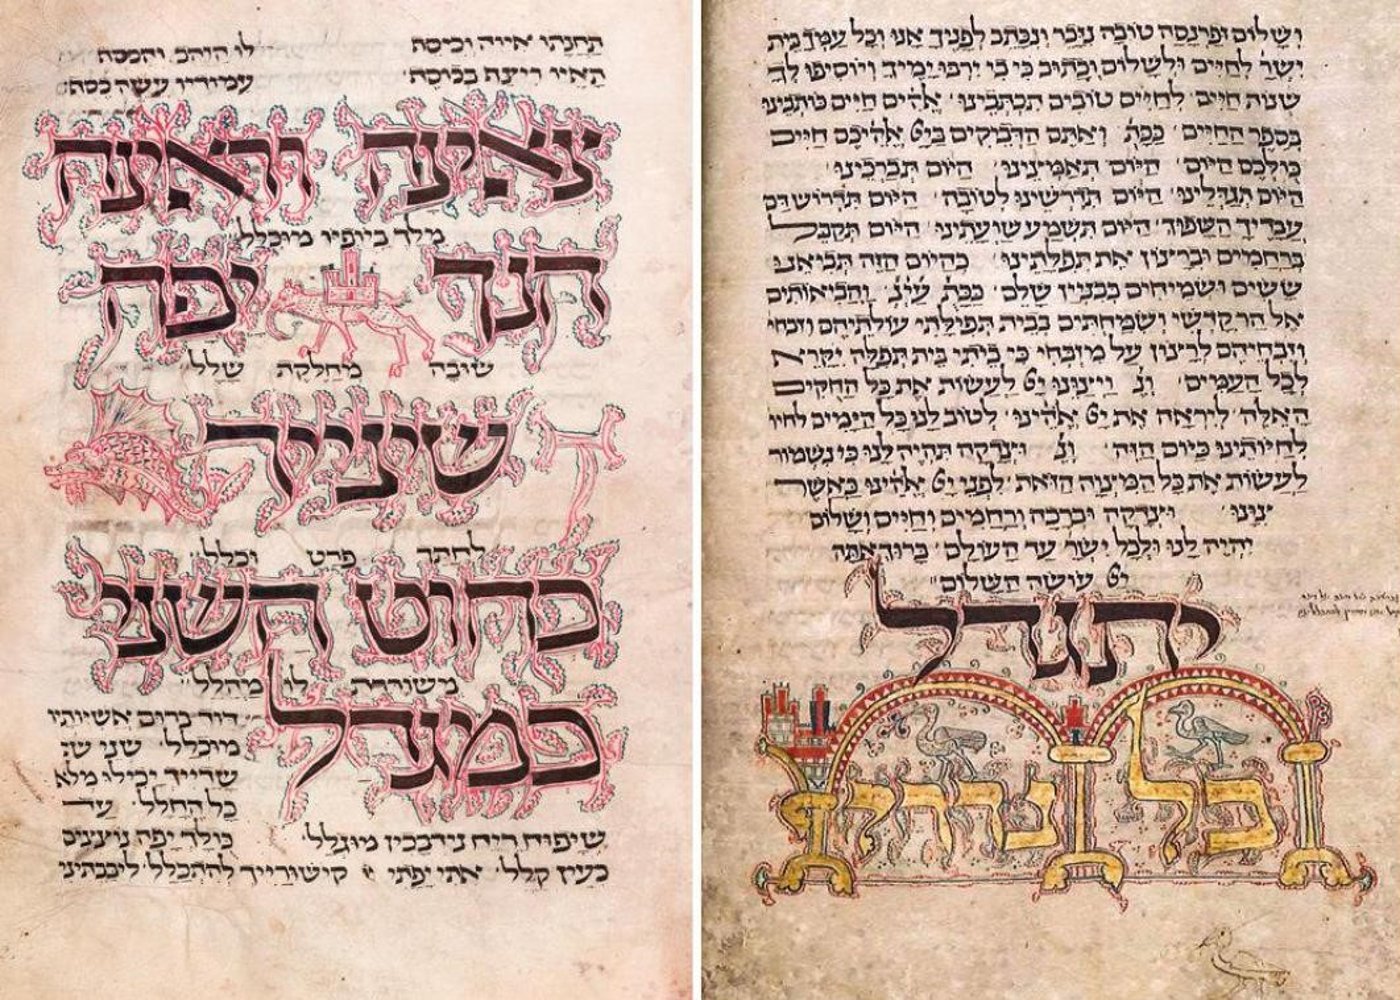 תחנתו איוה וכיסת
תאיו ריצת בכוסת
לו הזהב והככסת
עמוריו עשה כסת
צאינה וראינה
מלך ביופיו מוכלל
חנך יפה
שובה מחלקת שלל
שיניך
לחתך פרט וכלל
כחוט השני
משוררת לו מהלל
כמגדל
דור ברום אשיותיו
מוכלל שני שו
שדייך יכילו מלא
כל החלל עד
כולך יפה ניצצים
שיפוח ריח נירבכין מוגלל
כעין קלל אתי יפתי קישורייך להתכלל ליבבתיני
ושלום ופרנסה טובה ניזכר ונכתב לפניך אנו וכל עמך בית
ישר לחיים ולשלום וכתוב כי בי ירבו ימיך ויוסיפו לך
שנות חיים לחיים טובים תכתבינו אלהים חיים כותבינו
בספר החיים ככת ואתם הדביקים ביי אלהיכם חיים
כולכם היום היום תאמצינו היום תברכינו
היום תגדלינו היום תדרשינו לטובה היום תדרוש דם
עבדיך השפוך היום תשמע שועתינו היום תקבל
ברחמים וברצון את תפלתינו כהיום הזה תביאנו
ששים ושמיחים בבניין שלם ככת והביאותים
אל הר קדשי ושמחתים בבית תפילתי עולתיהם וזבחי
וזבחיהם לרצון על מזבחי כי ביתי בית תפלה יקרא
לכל העמים ונ ויצונו יי לעשות את כל החוקים
האלה ליראה את יי אלהינו לטוב לנו כל הימים לחיו
לחיותינו כיום הזה ונ וצדקה תהיה לנו כי נשמור
לעשות את כל המצוה הזאת לפני יי אלהינו כאשר
צינו וצדקה וברכה ורחמים וחיים ושלום
יהיה לנו ולכל ישר עד העולם ברוך אתה
יי עושה השלום
יתגדל
וכל נדרי